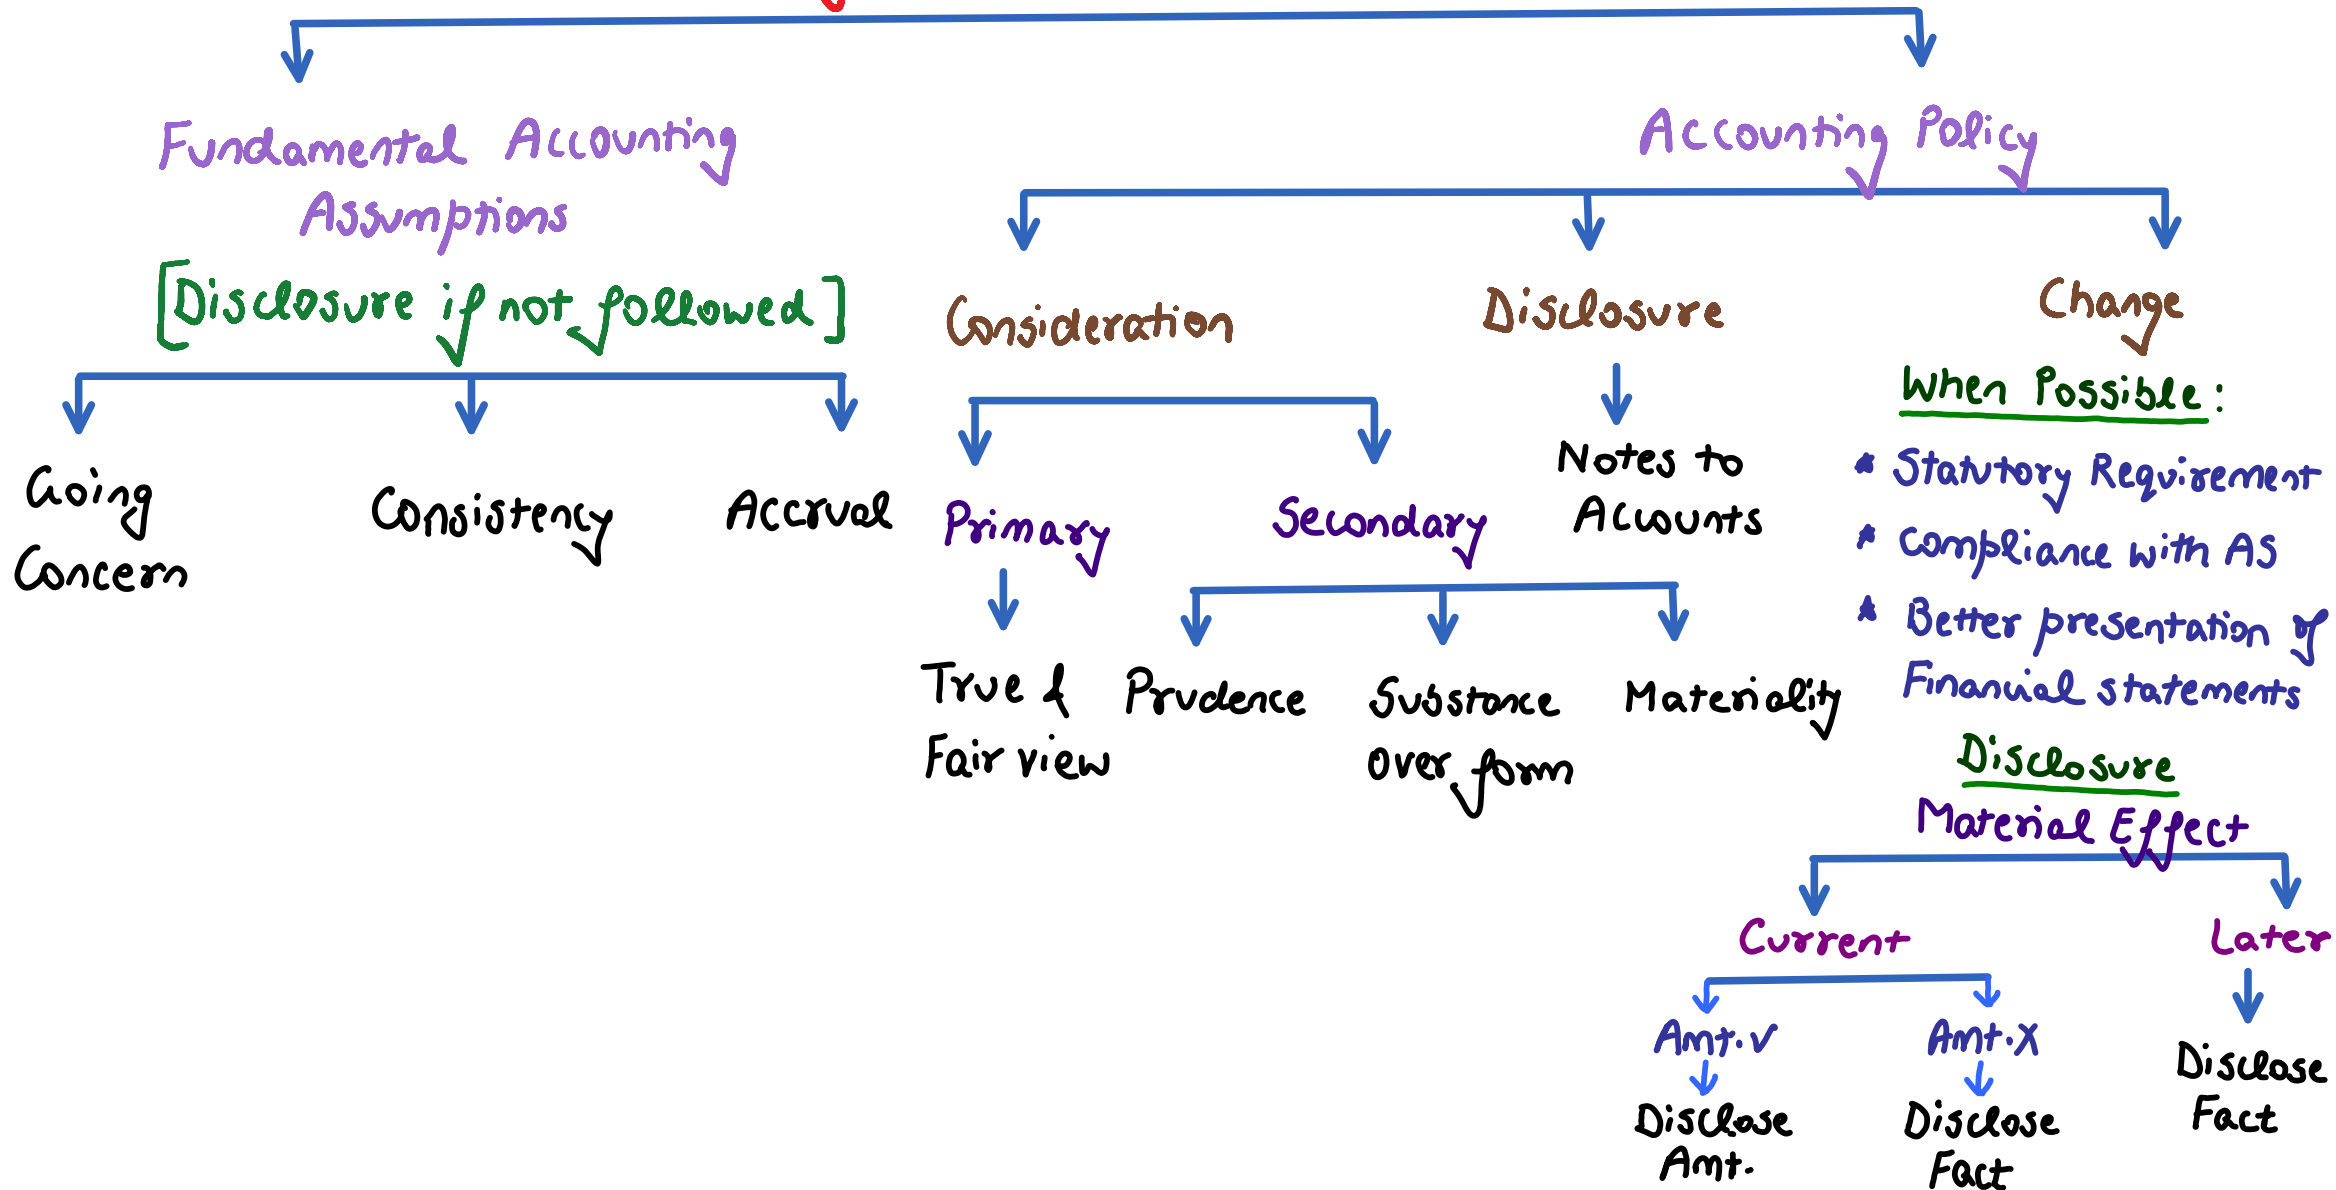 Fundamental Accounting
Assumptions
[Disclosure if not followed]
Going
Concern
Consistency
Accrual
Accounting Policy
Consideration
Primary
True &
Fair view
Secondary
Prudence
Substance
over form
Materiality
Disclosure
Notes to
Accounts
Change
When Possible:
* Statutory Requirement
* Compliance with AS
* Better presentation of
Financial statements
Disclosure
Material Effect
Current
Amt.✓
Disclose
Amt.
Amt.X
Disclose
Fact
Later
Disclose
Fact